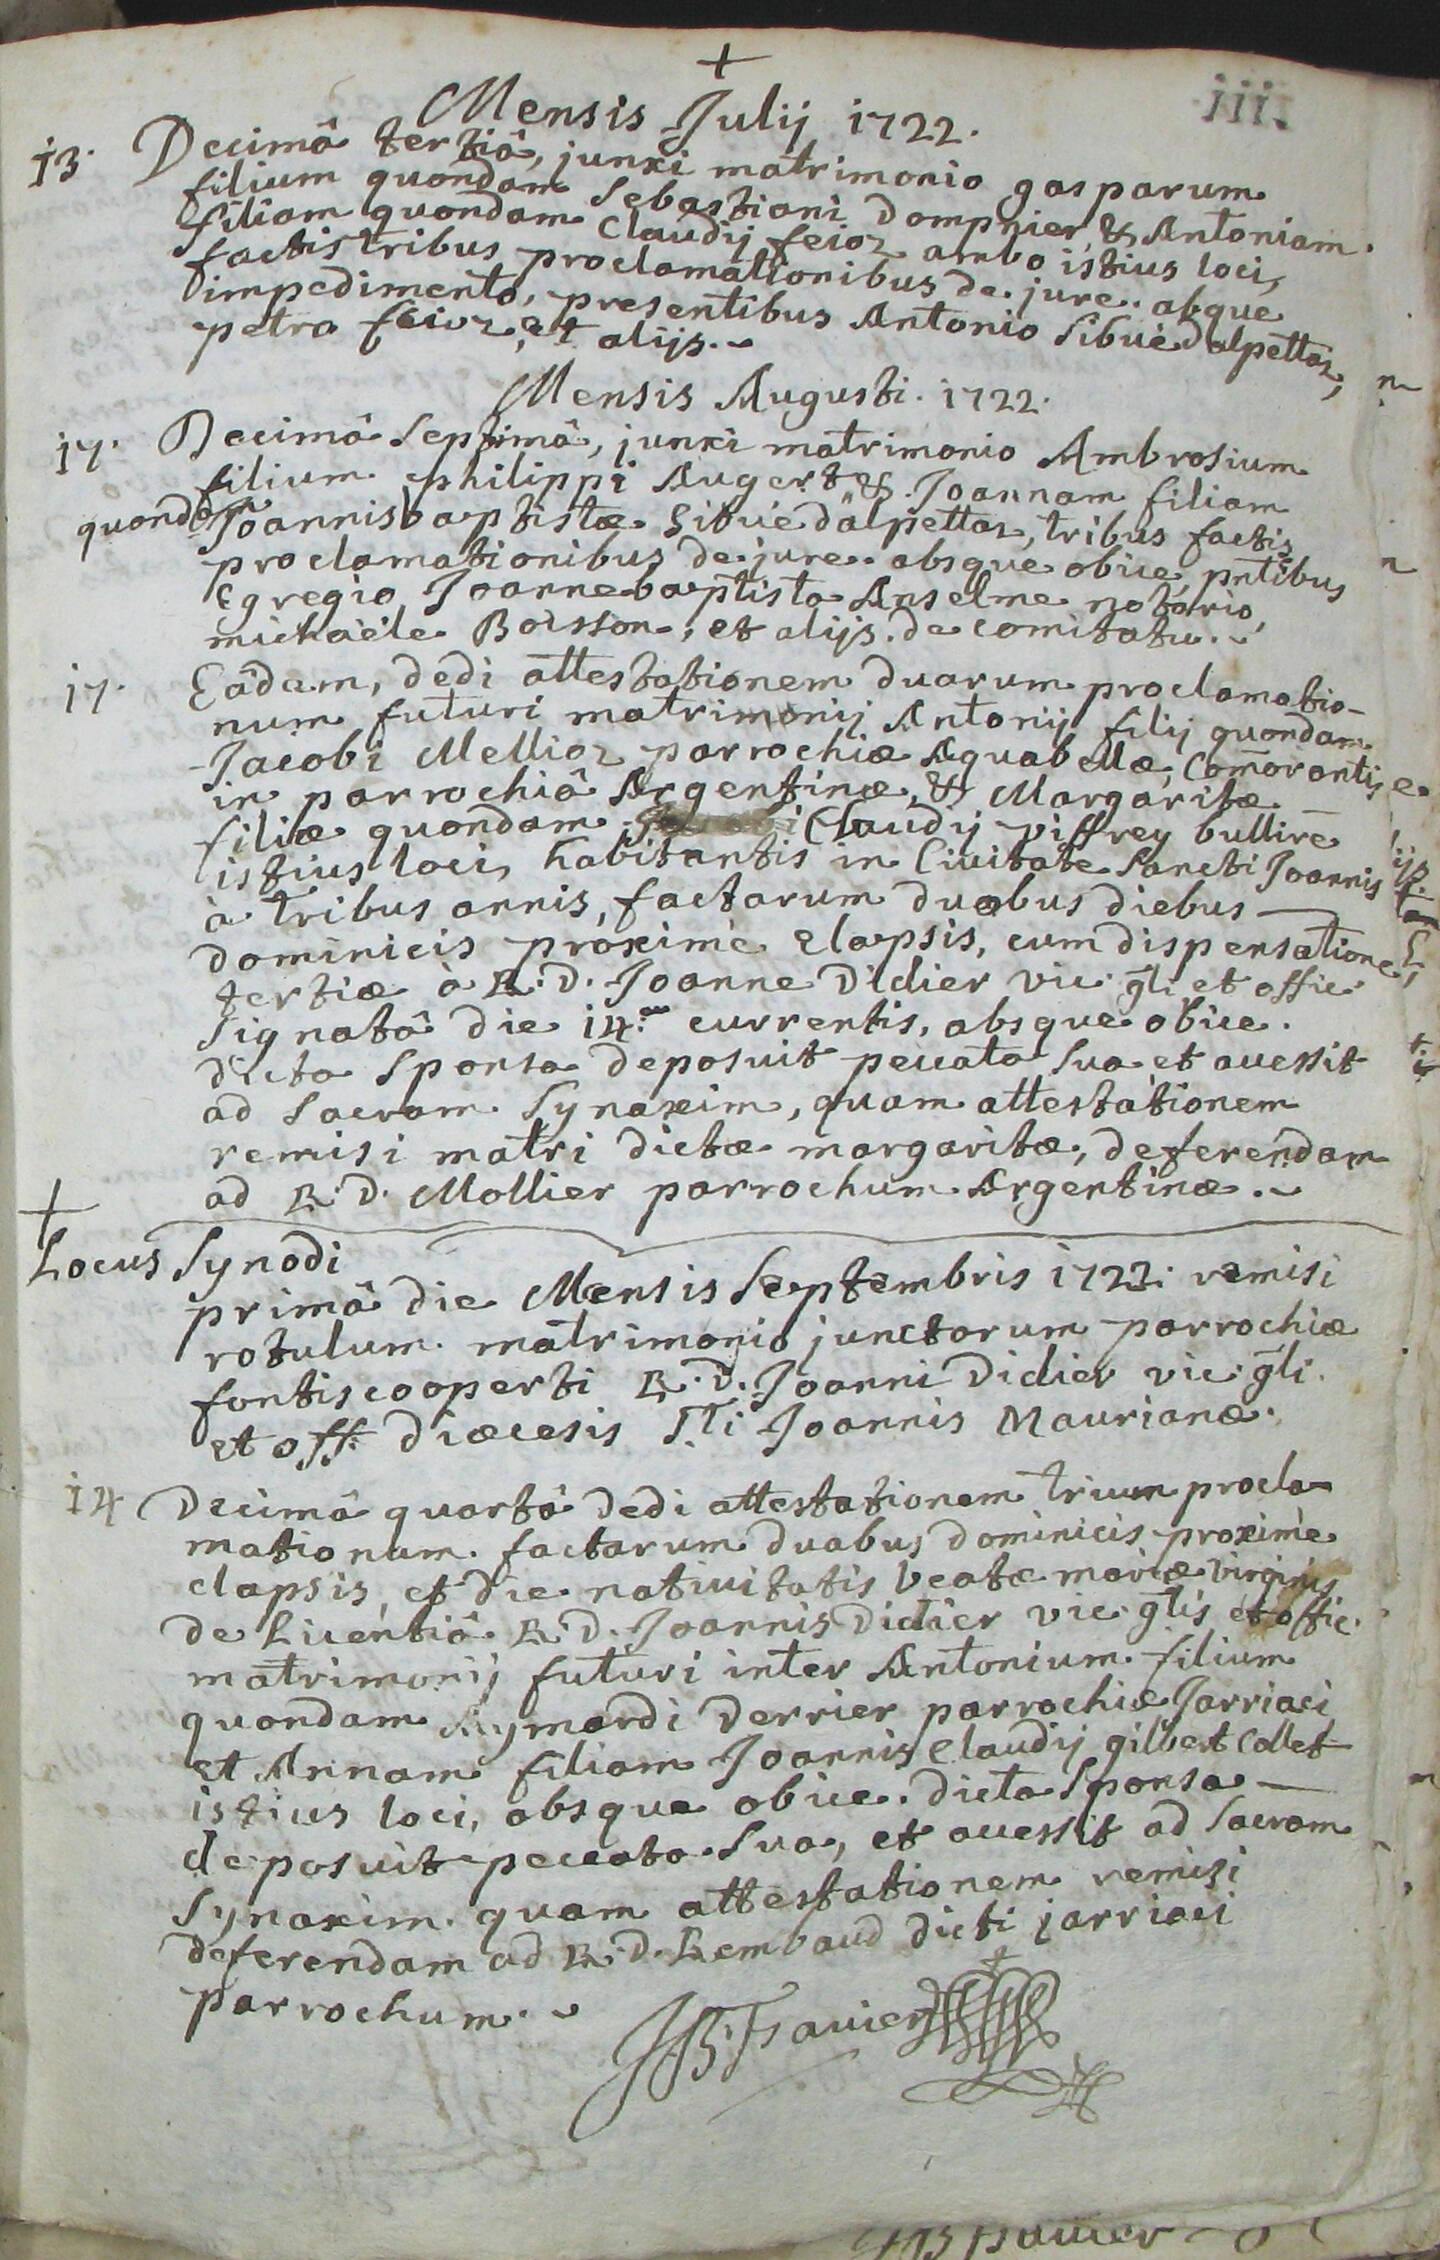 +
Mensis Julij 1722.
13. Decimâ tertiâ, junxi matrimonio gasparum
filium quondam Sebastiani Dompnier, & Antoniam
filiam quondam Claudij feioz ambo istius loci,
factis tribus proclamationibus de jure. absque
impedimento, presentibus Antonio Sibuë dalpettaz,
petro feioz, et alijs.
Mensis Augusti. 1722.
17. Decimâ Septimâ, junxi matrimonio Ambrosium
filium philippi Augert &. Joannam filiam
quondam Joannisbaptistæ Sibuë dalpettaz, tribus factis
proclamationibus de jure. absque obice, pntibus
Egregio Joannebaptista Anselme notario,
michaële Boisson, et alijs. de comitatu.
17. Eâdem, dedi attestationem duarum proclamatio-
num futuri matrimonij Antonij filij quondam
Jacobi Mellioz parrochiæ Aquabellæ, Com̄orantis
in parrochiâ Argentinæ, & Margaritæ
filiæ quondam Claudij piffrey bullire
istius loci, habitantis in Civitate Sancti Joannis
à tribus annis, factarum duobus diebus
dominicis proximè elapsis, cum dispensatione
tertiæ à R. D. Joanne Didier vic. gli et offic.
Signatâ die 14.a currentis, absque obice.
dicta Sponsa deposuit peccata Sua et accessit
ad Sacram Synaxim, quam attestationem
remisi matri dictæ margaritæ, deferendam
ad R. D. Mollier parrochum Argentinæ.
+
Locus Synodi
primâ die Mensis Septembris 1722. remisi
rotulum matrimonio junctorum parrochiæ
fontiscooperti R. D. Joanni Didier vic. gli.
et off. diœcesis Sti Joannis Maurianæ.
14 Decimâ quartâ dedi attestationem trium procla-
mationum factarum duabus dominicis proximè
elapsis, et die natiuitatis beatæ mariæ virginis
de Licentiâ R. D. Joannis Didier vic. glis et offic.
matrimonij futuri inter Antonium filium
quondam Aymardi Derrier parrochiæ Jarriaci
et Annam filiam Joannis Claudij gilbert Collet
istius loci, absque obice. dicta Sponsa
deposuit peccata Sua, et accessit ad Sacram
Synaxim. quam attestationem remisi
deferendam ad R. D. Rembaud dicti jarriaci
parrochum.